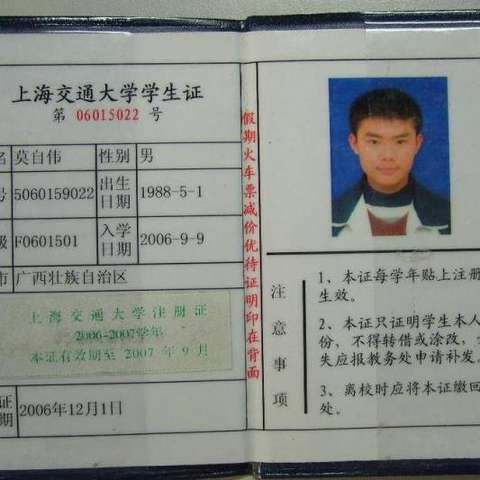 上海交通大学学生证
第 06015022 号
名 莫自伟 性别 男
号 5060159022 出生日期 1988-5-1
级 F0601501 入学日期 2006-9-9
市 广西壮族自治区
上海交通大学注册证
2006-2007学年
本证有效期至 2007 年 9 月
证期 2006年12月1日
假期火车票减价优待证明印在背面
注意事项
1、本证每学年贴上注册
生效。
2、本证只证明学生本人
份，不得转借或涂改，
失应报教务处申请补发。
3、离校时应将本证缴回
处。